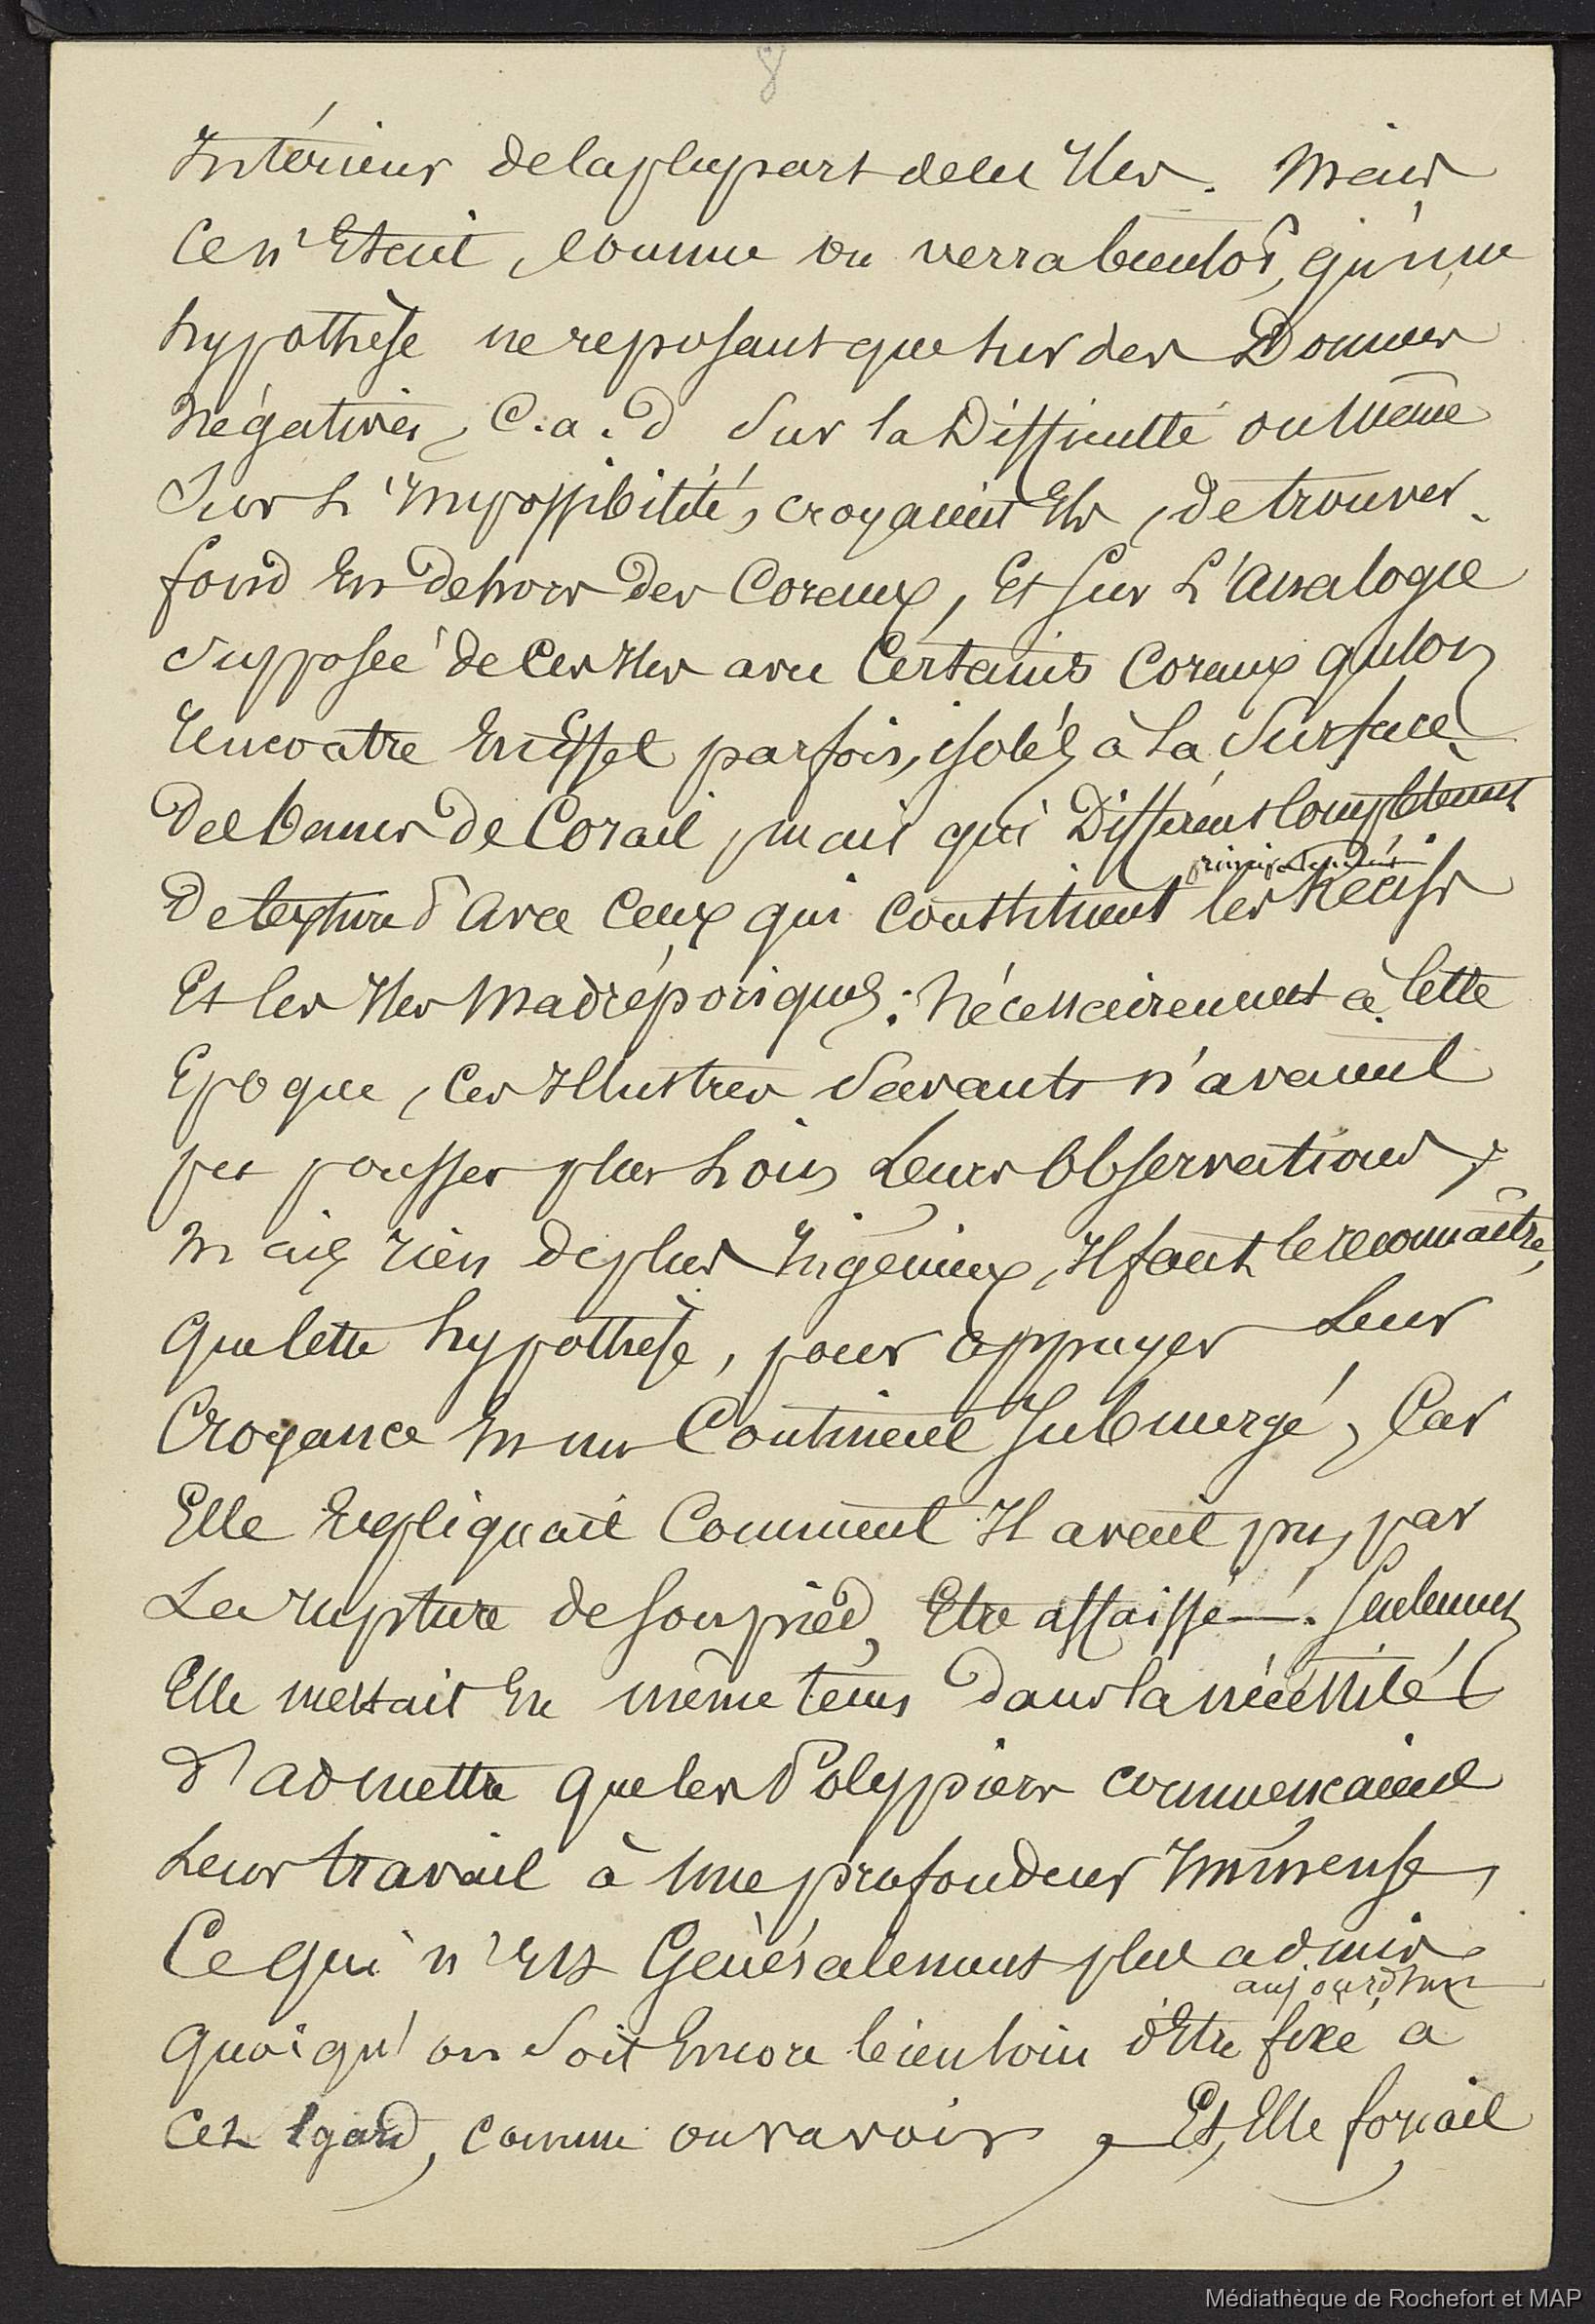 8
Intérieur de la plupart de les Iles. Mais
Ce n'Etait, comme on verra bientôt, qu'une
hypothèse ne reposant que sur des Données
Négatives, C.a.d Sur la Difficulté ou Même
Sur L'Impossibilité, croyaient Ils, de trouver
fond En Dehors des Coraux, Et sur L'Analogie
Supposée de Ces Iles avec Certains Coraux qu'lon
Rencontre En Effet parfois, isolés à La Surface
Des bancs de Corail, mais qui Diffèrent Complètement
principalement
De texture d'avec Ceux qui Constituent les Récifs
Et les Iles Madréporiques : Nécessairement à Cette
Epoque, Ces Illustres Savants n'avaient
pas pousser plus Loin Leurs Observations,
Mais rien de plus Ingénieux, Il faut le reconnaître,
Que Cette hypothèse, pour appuyer Leur
Croyance En un Continent Submergé, Car
Elle Expliquait Comment Il avait pu, par
La rupture de son pied, Etre affaissé. Seulement
Elle mettait En même tems dans la nécessité
d'admettre que les Polypiers commençaient
Leur travail à Une profondeur Immense,
Ce qui n'Est Généralement plus admis
aujourd'hui
Quoiqu'on Soit Encore bien loin d'Etre fixé à
Cet Egard, comme on va voir, Et, Elle forçait
Médiathèque de Rochefort et MAP